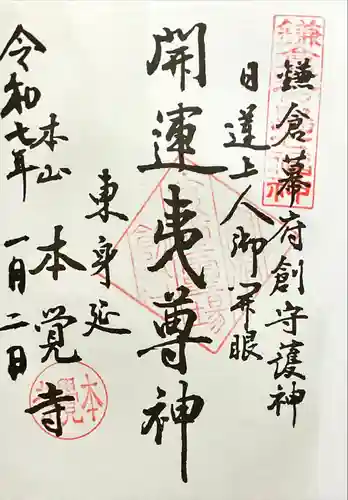 鎌倉幕府創守護神
日蓮上人御開眼
開運夷尊神
東身延
本山
本覺寺
令和七年
一月二日
本覺